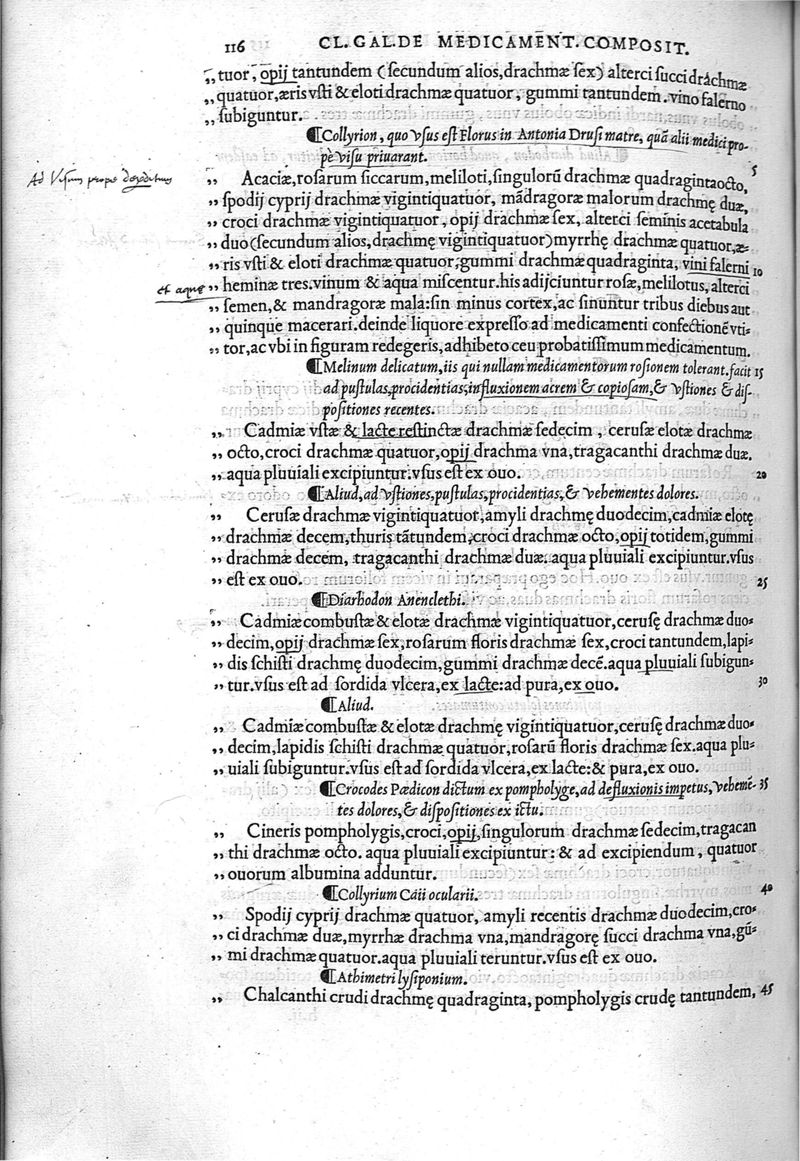 116 CL. GAL. DE MEDICAMENT. COMPOSIT.
„tuor, opij tantundem (ſecundum alios, drachmæ ſex) alterci ſucci drachmæ
„quatuor, æris vſti & eloti drachmæ quatuor, gummi tantundem. vino falerno
„ſubiguntur.
¶Collyrion, quo vſus eſt Florus in Antonia Druſi matre, quã alii medici pro-
pè viſu priuarant. 5
Ad Visum prope deperditum
„ Acaciæ, roſarum ſiccarum, meliloti, ſingulorũ drachmæ quadragintaocto,
„ſpodij cyprij drachmæ vigintiquatuor, mãdragoræ malorum drachmę duæ,
„croci drachmæ vigintiquatuor, opij drachmæ ſex, alterci ſeminis acetabula
„duo (ſecundum alios, drachmę vigintiquatuor) myrrhę drachmæ quatuor, æ-
„ris vſti & eloti drachmæ quatuor, gummi drachmæ quadraginta, vini falerni 10
et aque
„heminæ tres. vinum & aqua miſcentur. his adijciuntur roſæ, melilotus, alterci
„ſemen, & mandragoræ mala: ſin minus cortex, ac ſinuntur tribus diebus aut
„quinque macerari. deinde liquore expreſſo ad medicamenti confectionẽ vti-
„tor, ac vbi in figuram redegeris, adhibeto ceu probatiſſimum medicamentum.
¶Melinum delicatum, iis qui nullam medicamentorum roſionem tolerant. facit 15
ad puſtulas, procidentias, influxionem acrem & copioſam, & vſtiones & diſ-
poſitiones recentes.
„ Cadmiæ vſtæ & lacte reſtinctæ drachmæ ſedecim, ceruſæ elotæ drachmæ
„octo, croci drachmæ quatuor, opij drachma vna, tragacanthi drachmæ duæ.
„aqua pluuiali excipiuntur. vſus eſt ex ouo. 20
¶Aliud, ad vſtiones, puſtulas, procidentias, & vehementes dolores.
„ Ceruſæ drachmæ vigintiquatuor, amyli drachmę duodecim, cadmiæ elotę
„drachmæ decem, thuris tãtundem, croci drachmæ octo, opij totidem, gummi
„drachmæ decem, tragacanthi drachmæ duæ. aqua pluuiali excipiuntur. vſus
„eſt ex ouo. 25
¶Diarhodon Anenclethi.
„ Cadmiæ combuſtæ & elotæ drachmæ vigintiquatuor, ceruſę drachmæ duo-
„decim, opij drachmæ ſex, roſarum floris drachmæ ſex, croci tantundem, lapi-
„dis ſchiſti drachmę duodecim, gummi drachmæ decẽ. aqua pluuiali ſubigun-
„tur. vſus eſt ad ſordida vlcera, ex lacte: ad pura, ex ouo. 30
¶Aliud.
„ Cadmiæ combuſtæ & elotæ drachmę vigintiquatuor, ceruſę drachmæ duo-
„decim, lapidis ſchiſti drachmæ quatuor, roſarũ floris drachmæ ſex. aqua plu-
„uiali ſubiguntur. vſus eſt ad ſordida vlcera, ex lacte: & pura, ex ouo.
¶Crocodes Pædicon dictum ex pompholyge, ad defluxionis impetus, vehemẽ- 35
tes dolores, & diſpoſitiones ex ictu.
„ Cineris pompholygis, croci, opij, ſingulorum drachmæ ſedecim, tragacan
„thi drachmæ octo. aqua pluuiali excipiuntur: & ad excipiendum, quatuor
„ouorum albumina adduntur.
¶Collyrium Caii ocularii. 40
„ Spodij cyprij drachmæ quatuor, amyli recentis drachmæ duodecim, cro-
„ci drachmæ duæ, myrrhæ drachma vna, mandragorę ſucci drachma vna, gũ-
„mi drachmæ quatuor. aqua pluuiali teruntur. vſus eſt ex ouo.
¶Athimetri lyſiponium.
„ Chalcanthi crudi drachmę quadraginta, pompholygis crudę tantundem, 45